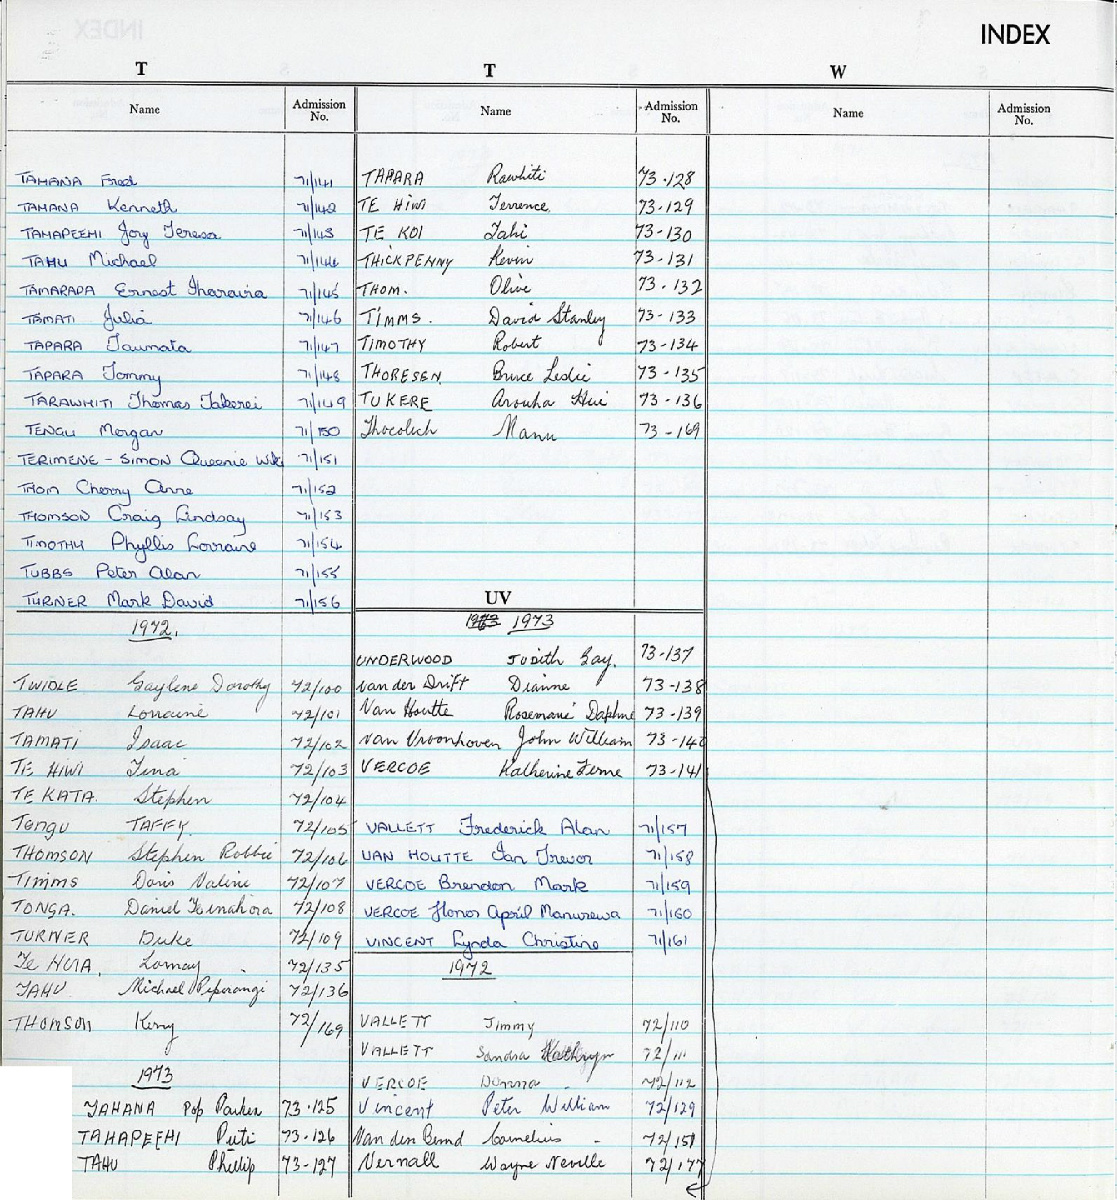 INDEX
T
Name Admission No.
TAHANA Fred 71/141
TAHANA Kenneth 71/142
TAHAPEEHI Joy Teresa 71/143
TAHU Michael 71/144
TAMARAPA Ernest Iharaira 71/145
TAMATI Julia 71/146
TAPARA Taumata 71/147
TAPARA Tommy 71/148
TARAWHITI Thomas Takerei 71/149
TENGU Morgan 71/150
TERIMENE - SIMON Queenie Wiki 71/151
THOM Cherry Anne 71/152
THOMSON Craig Lindsay 71/153
TIMOTHY Phyllis Lorraine 71/154
TUBBS Peter Alan 71/155
TURNER Mark David 71/156
1972.
TWIDLE Gaylene Dorothy 72/100
TAHU Lorraine 72/101
TAMATI Isaac 72/102
TE HIWI Tina 72/103
TE KATA. Stephen 72/104
Tengu TAFFY. 72/105
THOMSON Stephen Robbie 72/106
TIMMS Doris Valerie 72/107
TONGA. Daniel 72/108
TURNER Duke 72/109
Te HUIA, 72/135
TAHU. Michael 72/136
THOMSON Kerry 72/169
1973
TAHANA Pop Parker 73-125
TAHAPEEHI Puti 73-126
TAHU Phillip 73-127
T
Name Admission No.
TAPARA Rawhiti 73-128
TE HIWI Terrence. 73-129
TE KOI Tahi 73-130
THICKPENNY Kevin 73-131
THOM. Olive 73-132
TIMMS. David Stanley 73-133
TIMOTHY Robert 73-134
THORESEN Bruce Leslie 73-135
TUKERE Arouha Hui 73-136
Manu 73-169
UV
1973
UNDERWOOD Judith Gay. 73-137
van der Drift Dianne 73-138
Van Houtte Rosemarie Daphne 73-139
Van Vroonhoven John William 73-140
VERCOE Katherine Ferne 73-141
VALLETT Frederick Alan 71/157
VAN HOUTTE Ian Trevor 71/158
VERCOE Brendon Mark 71/159
VERCOE Honor April Manurewa 71/160
VINCENT Lynda Christine 71/161
1972
VALLETT Jimmy 72/110
VALLETT Sandra Kathryn 72/111
VERCOE Donna 72/112
Vincent Peter William 72/129
Van den Bemd Cornelius 72/151
Vernall Wayne Neville 72/177
W
Name Admission No.